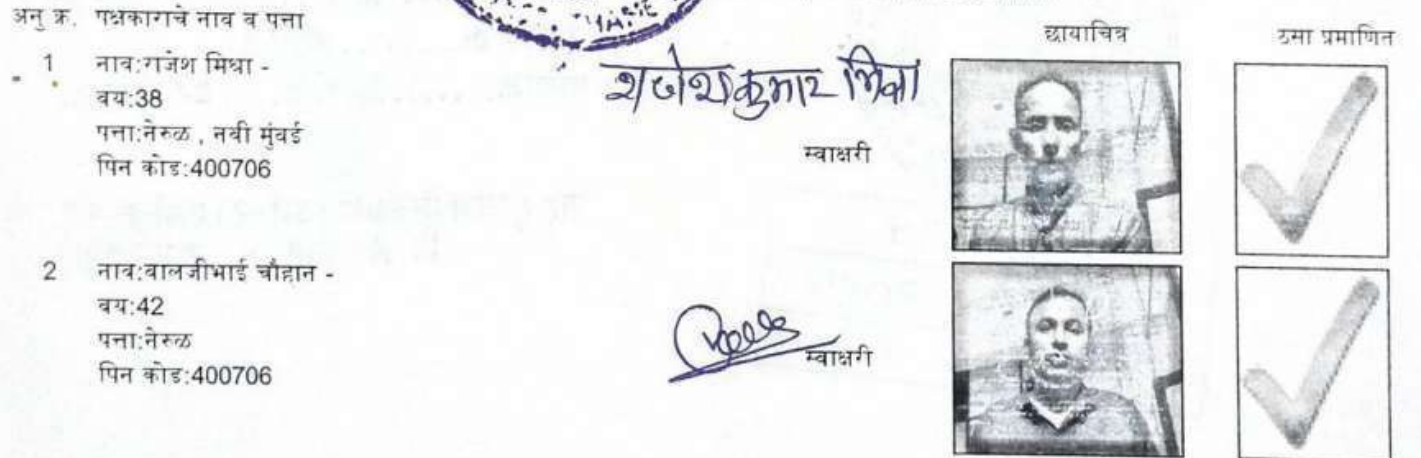 अनु क्र. पक्षकाराचे नाव व पत्ता
छायाचित्र
ठसा प्रमाणित
1 नाव:राजेश मिश्रा -
वय:38
पत्ता:नेरुळ , नवी मुंबई
पिन कोड:400706
राजेशकुमार मिश्रा
स्वाक्षरी
2 नाव:वालजीभाई चौहान -
वय:42
पत्ता:नेरुळ
पिन कोड:400706
स्वाक्षरी